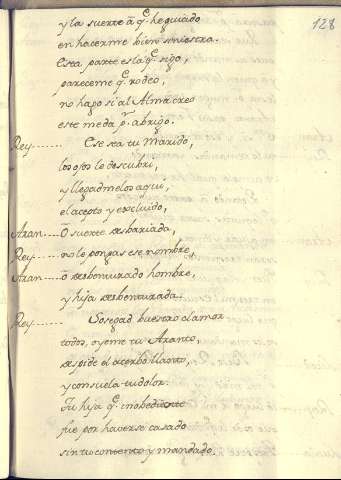 128
y la suerte à q.e he guiado
en hacerme bien siniestra.
Esta parte es la q.e sigo,
pareceme q.e rodeo,
no hago si al Alma creo
este me da p.r abrigo.
Rey...... Ese sea tu Marido,
los ojos le descubri,
y llegadmelos aqui,
el acepto y excluido,
Aran.... O suerte desbariada,
Rey..... no le pongas ese nombre,
Aran... ò desbenturado hombre,
y hija desbenturada.
Rey....... Sosegad buestro clamor
todos, oyeme tu Aranto,
despide el acerbo llanto,
y consuela tu dolor.
Tu hija q.e inobediente
fue por haverse casado
sin tu contento y mandado.